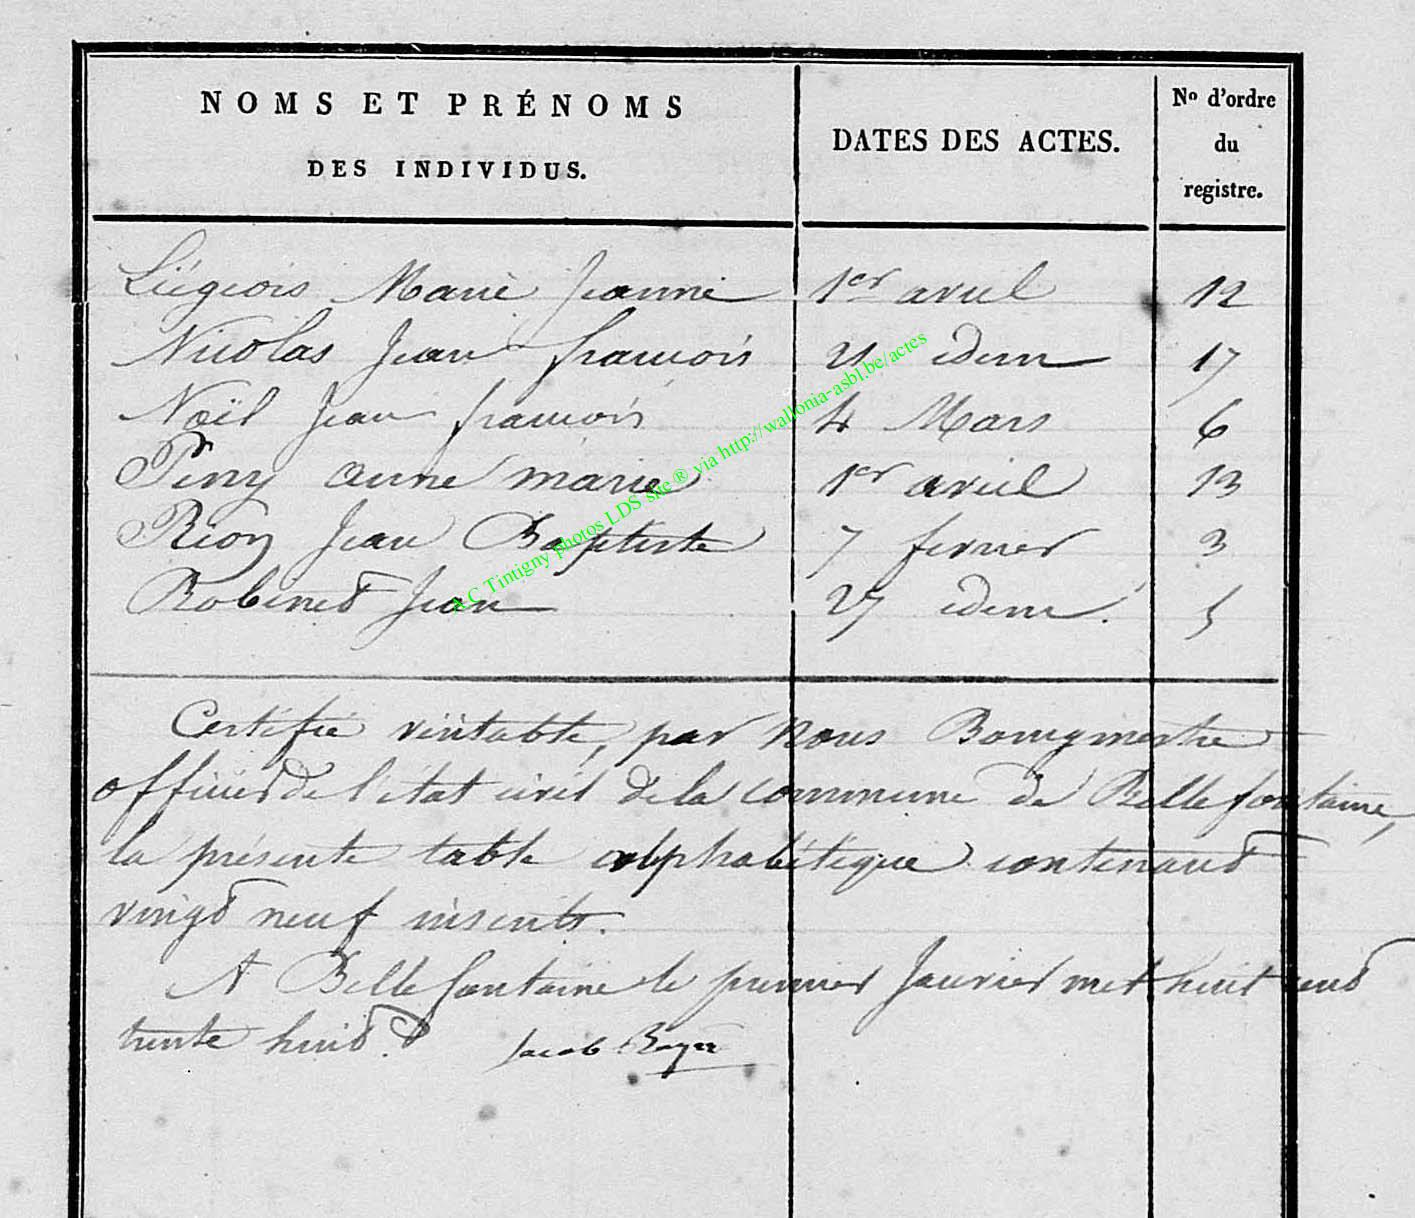 NOMS ET PRÉNOMS
DES INDIVIDUS.
DATES DES ACTES.
No d'ordre
du
registre.
Liégeois Marie Jeanne 1er avril 12
Nicolas Jean françois 21 idem 17
Noël Jean françois 4 Mars 6
Piny anne marie 1er avril 13
Rion Jean Baptiste 7 fevrier 3
Robinet Jean 27 idem. 5
Certifié véritable, par Nous Bourgmestre
officier de l'état civil de la commune de Bellefontaine,
la présente table alphabétique contenant
vingt neuf inscrits.
A Bellefontaine le premier Janvier mil huit cent
trente huit. Jacob Roger
AC Tintigny photos LDS site ® via http://wallonia-asbl.be/actes